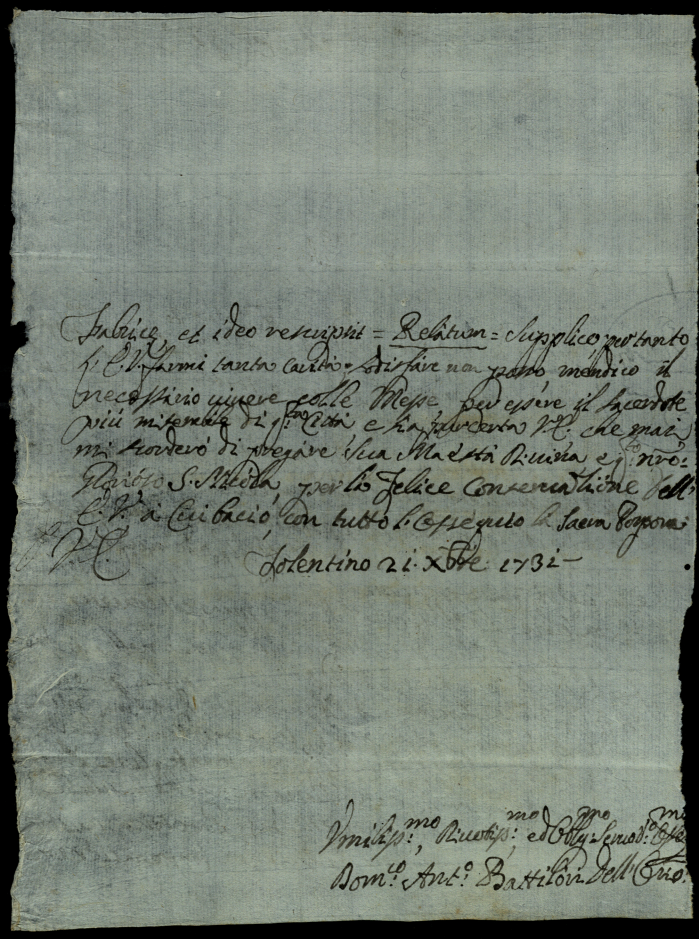 Fabrice, et ideo rescripsit = Relatum = Supplico per tanto
l'E.V. farmi tanta carità sodisfare non posso mendico il
necessario vivere colle Messe per essere il sacerdote
più miserabile di q.sta Città e sia percerta V.E. che mai
mi scorderò di pregare Sua Maestà Divina e q.to nr̃o
Glorioso S. Nicola per la felice Conservatione dell'
E.V. a cui bacio con tutto l'ossequio la Sacra Porpora
V.E.
Tolentino 21. Xbre 1731 –
Umilis.mo, Divotis.mo, ed Obblg.mo Servo
Dom.co Ant.o Battilori Dell'